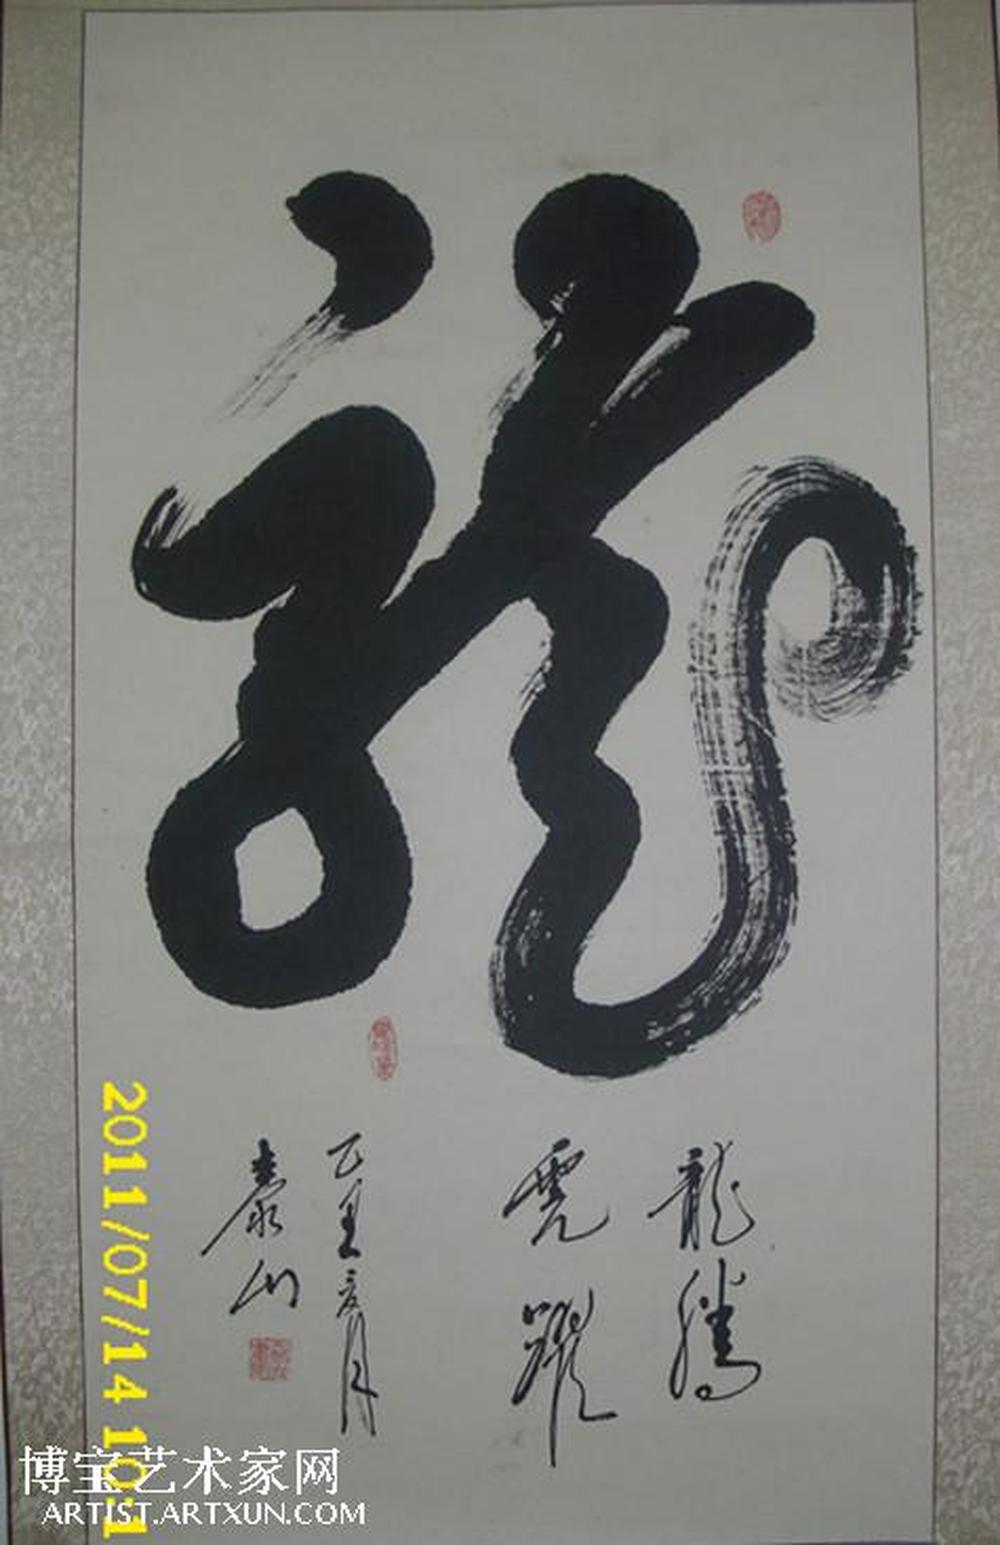 龍
龍騰
虎躍
泰山
2011/07/14 10:1
博宝艺术家网
ARTIST.ARTXUN.COM